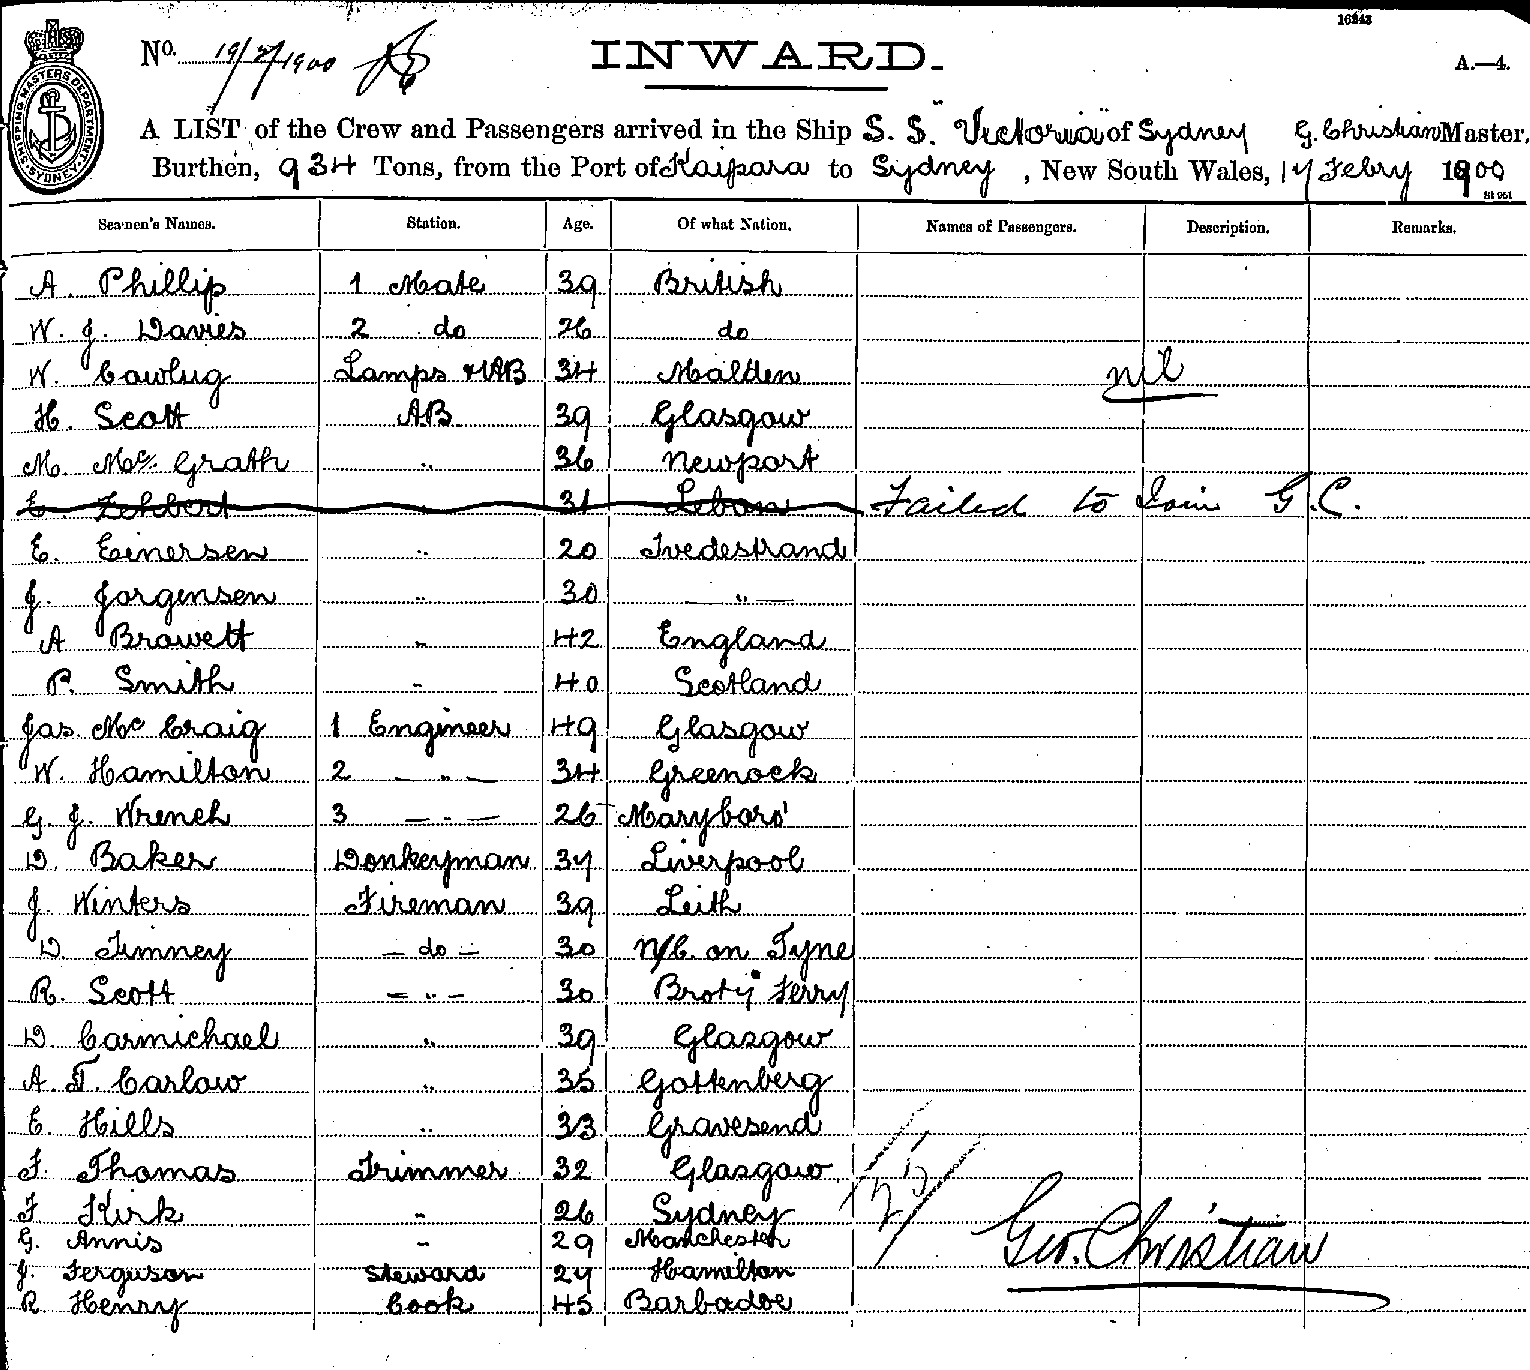 16243
No. 19/2/1900
INWARD.
A.—4.
SHIPPING MASTERS DEPARTMENT SYDNEY
A LIST of the Crew and Passengers arrived in the Ship S. S. "Victoria" of Sydney G. Christian Master,
Burthen, 934 Tons, from the Port of Kaipara to Sydney, New South Wales, 17 Febry 1900
Seamen's Names. Station. Age. Of what Nation. Names of Passengers. Description. Remarks.
A. Phillip 1 Mate 39 British
W. J. Davies 2 do 26 do
W. Cowlug Lamps & AB 34 Malden nil
H. Scott AB 39 Glasgow
M. McGrath " 36 Newport
E. Zehbert " 31 Leban Failed to Join G.C.
E. Einersen " 20 Tvedestrand
J. Jorgensen " 30 "
A Browett " 42 England
P. Smith " 40 Scotland
Jas Mc Craig 1 Engineer 49 Glasgow
W. Hamilton 2 " 34 Greenock
G. J. Wrench 3 " 26 Maryboro'
D. Baker Donkeyman 37 Liverpool
J. Winters Fireman 39 Leith
D. Timney do 30 N/C. on Tyne
R. Scott " 30 Broty Ferry
D. Carmichael " 39 Glasgow
A. T. Carlow " 35 Gottenberg
E. Hills " 33 Gravesend
F. Thomas Trimmer 32 Glasgow
F Kirk " 26 Sydney
G. Annis " 29 Manchester
J. Ferguson Steward 27 Hamilton
R Henry Cook 45 Barbadoe
Geo. Christian